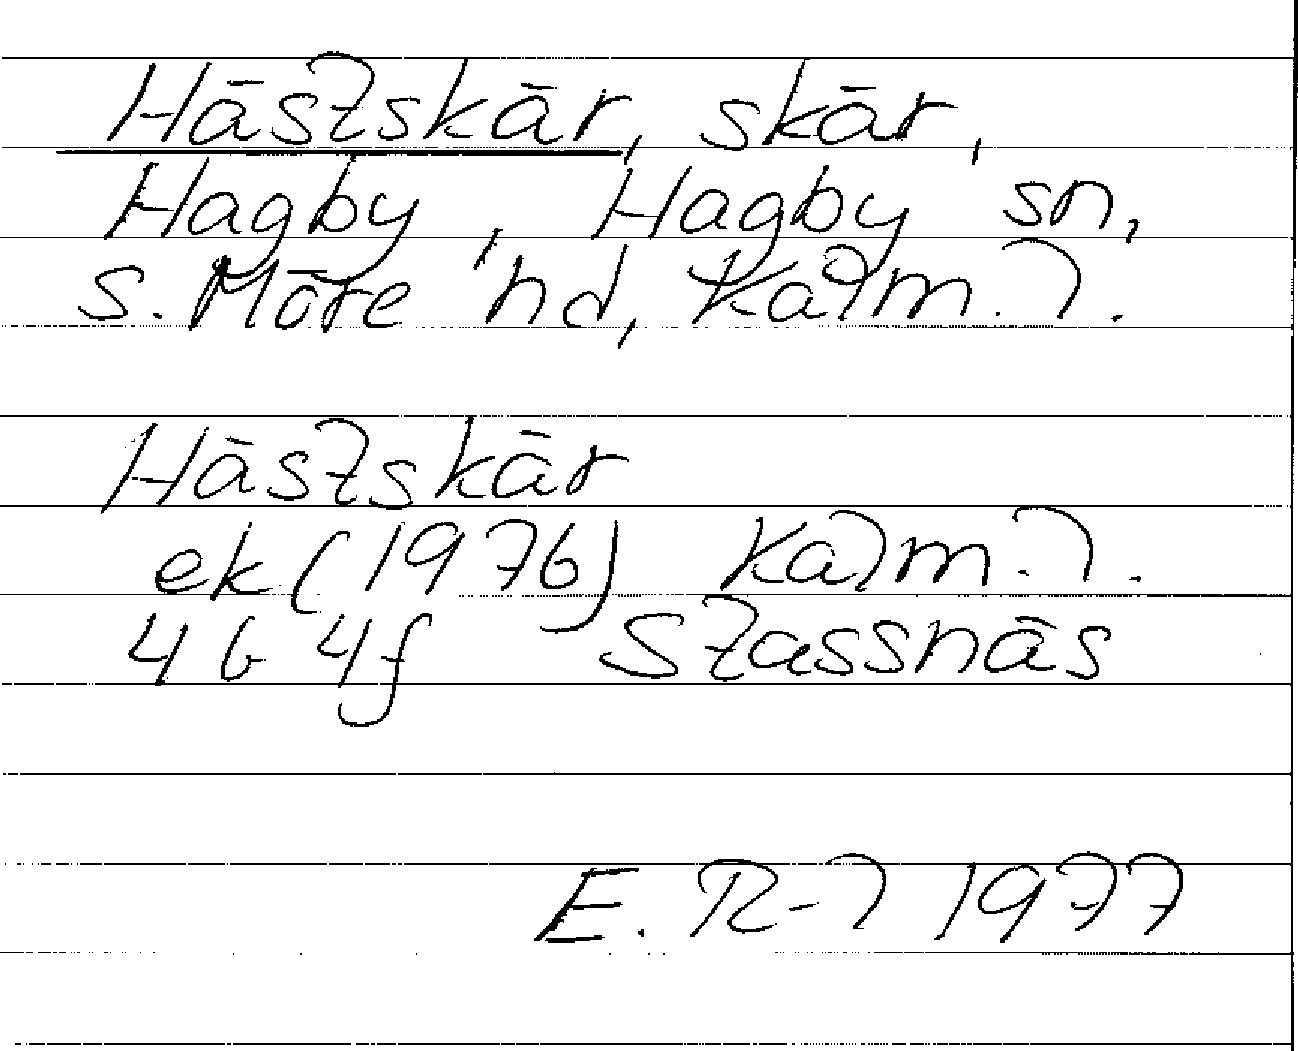 Hästskär, skär,
Hagby, Hagby sn,
S. Möre hd, Kalm. l.
Hästskär
ek (1976) Kalm. l.
4G 4f Stassnäs
E. R-l 1977